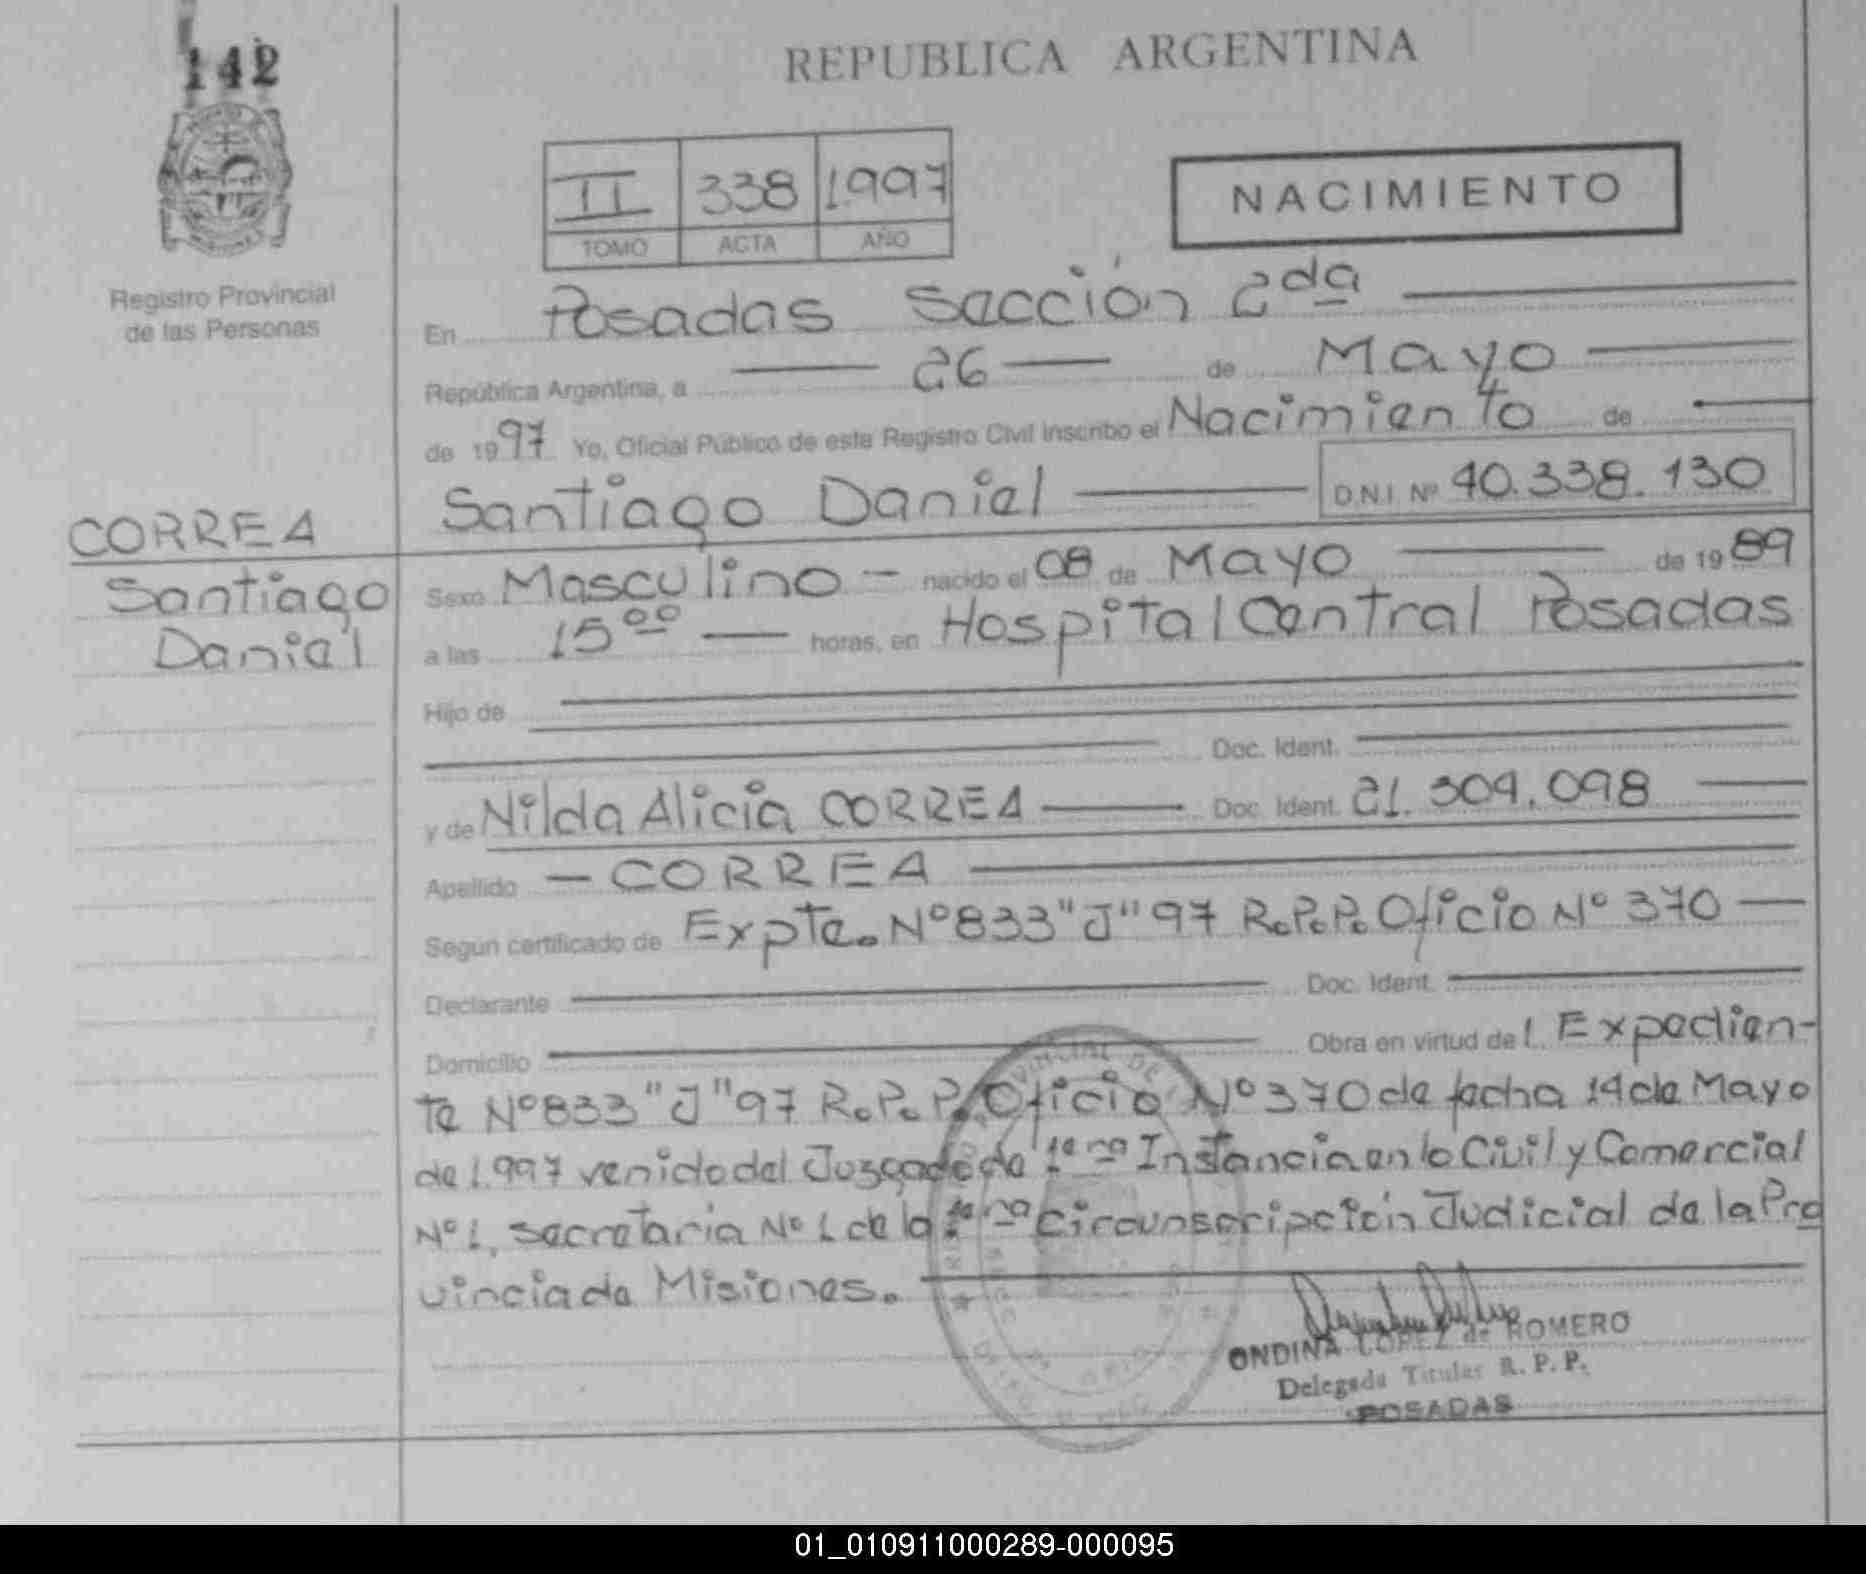 142
REPUBLICA ARGENTINA
II 338 1.997
TOMO ACTA AÑO
NACIMIENTO
Registro Provincial
de las Personas
En Posadas Sección 2da
República Argentina, a 26 de Mayo
de 1997 Yo, Oficial Público de este Registro Civil inscribo el Nacimiento de
Santiago Daniel D.N.I. Nº 40.338.130
CORREA
Santiago
Daniel
Sexo Masculino - nacido el 08 de Mayo de 1989
a las 15 00 horas, en Hospital Central Posadas
Hijo de
Doc. Ident.
y de Nilda Alicia CORREA Doc. Ident. 21.309.098
Apellido - CORREA
Según certificado de Expte. Nº 833 "J" 97 R.P.P. Oficio Nº 370
Declarante Doc. Ident.
Domicilio Obra en virtud del Expedien-
te Nº 833 "J" 97 R.P.P. Oficio Nº 370 de fecha 14 de Mayo
de 1.997 venido del Juzgado de 1era Instancia en lo Civil y Comercial
Nº 1, secretaria Nº 1 de la 1era Circunscripción Judicial de la Pro
vincia de Misiones.
ONDINA LOPEZ de ROMERO
Delegada Titular R. P. P.
POSADAS
01_010911000289-000095